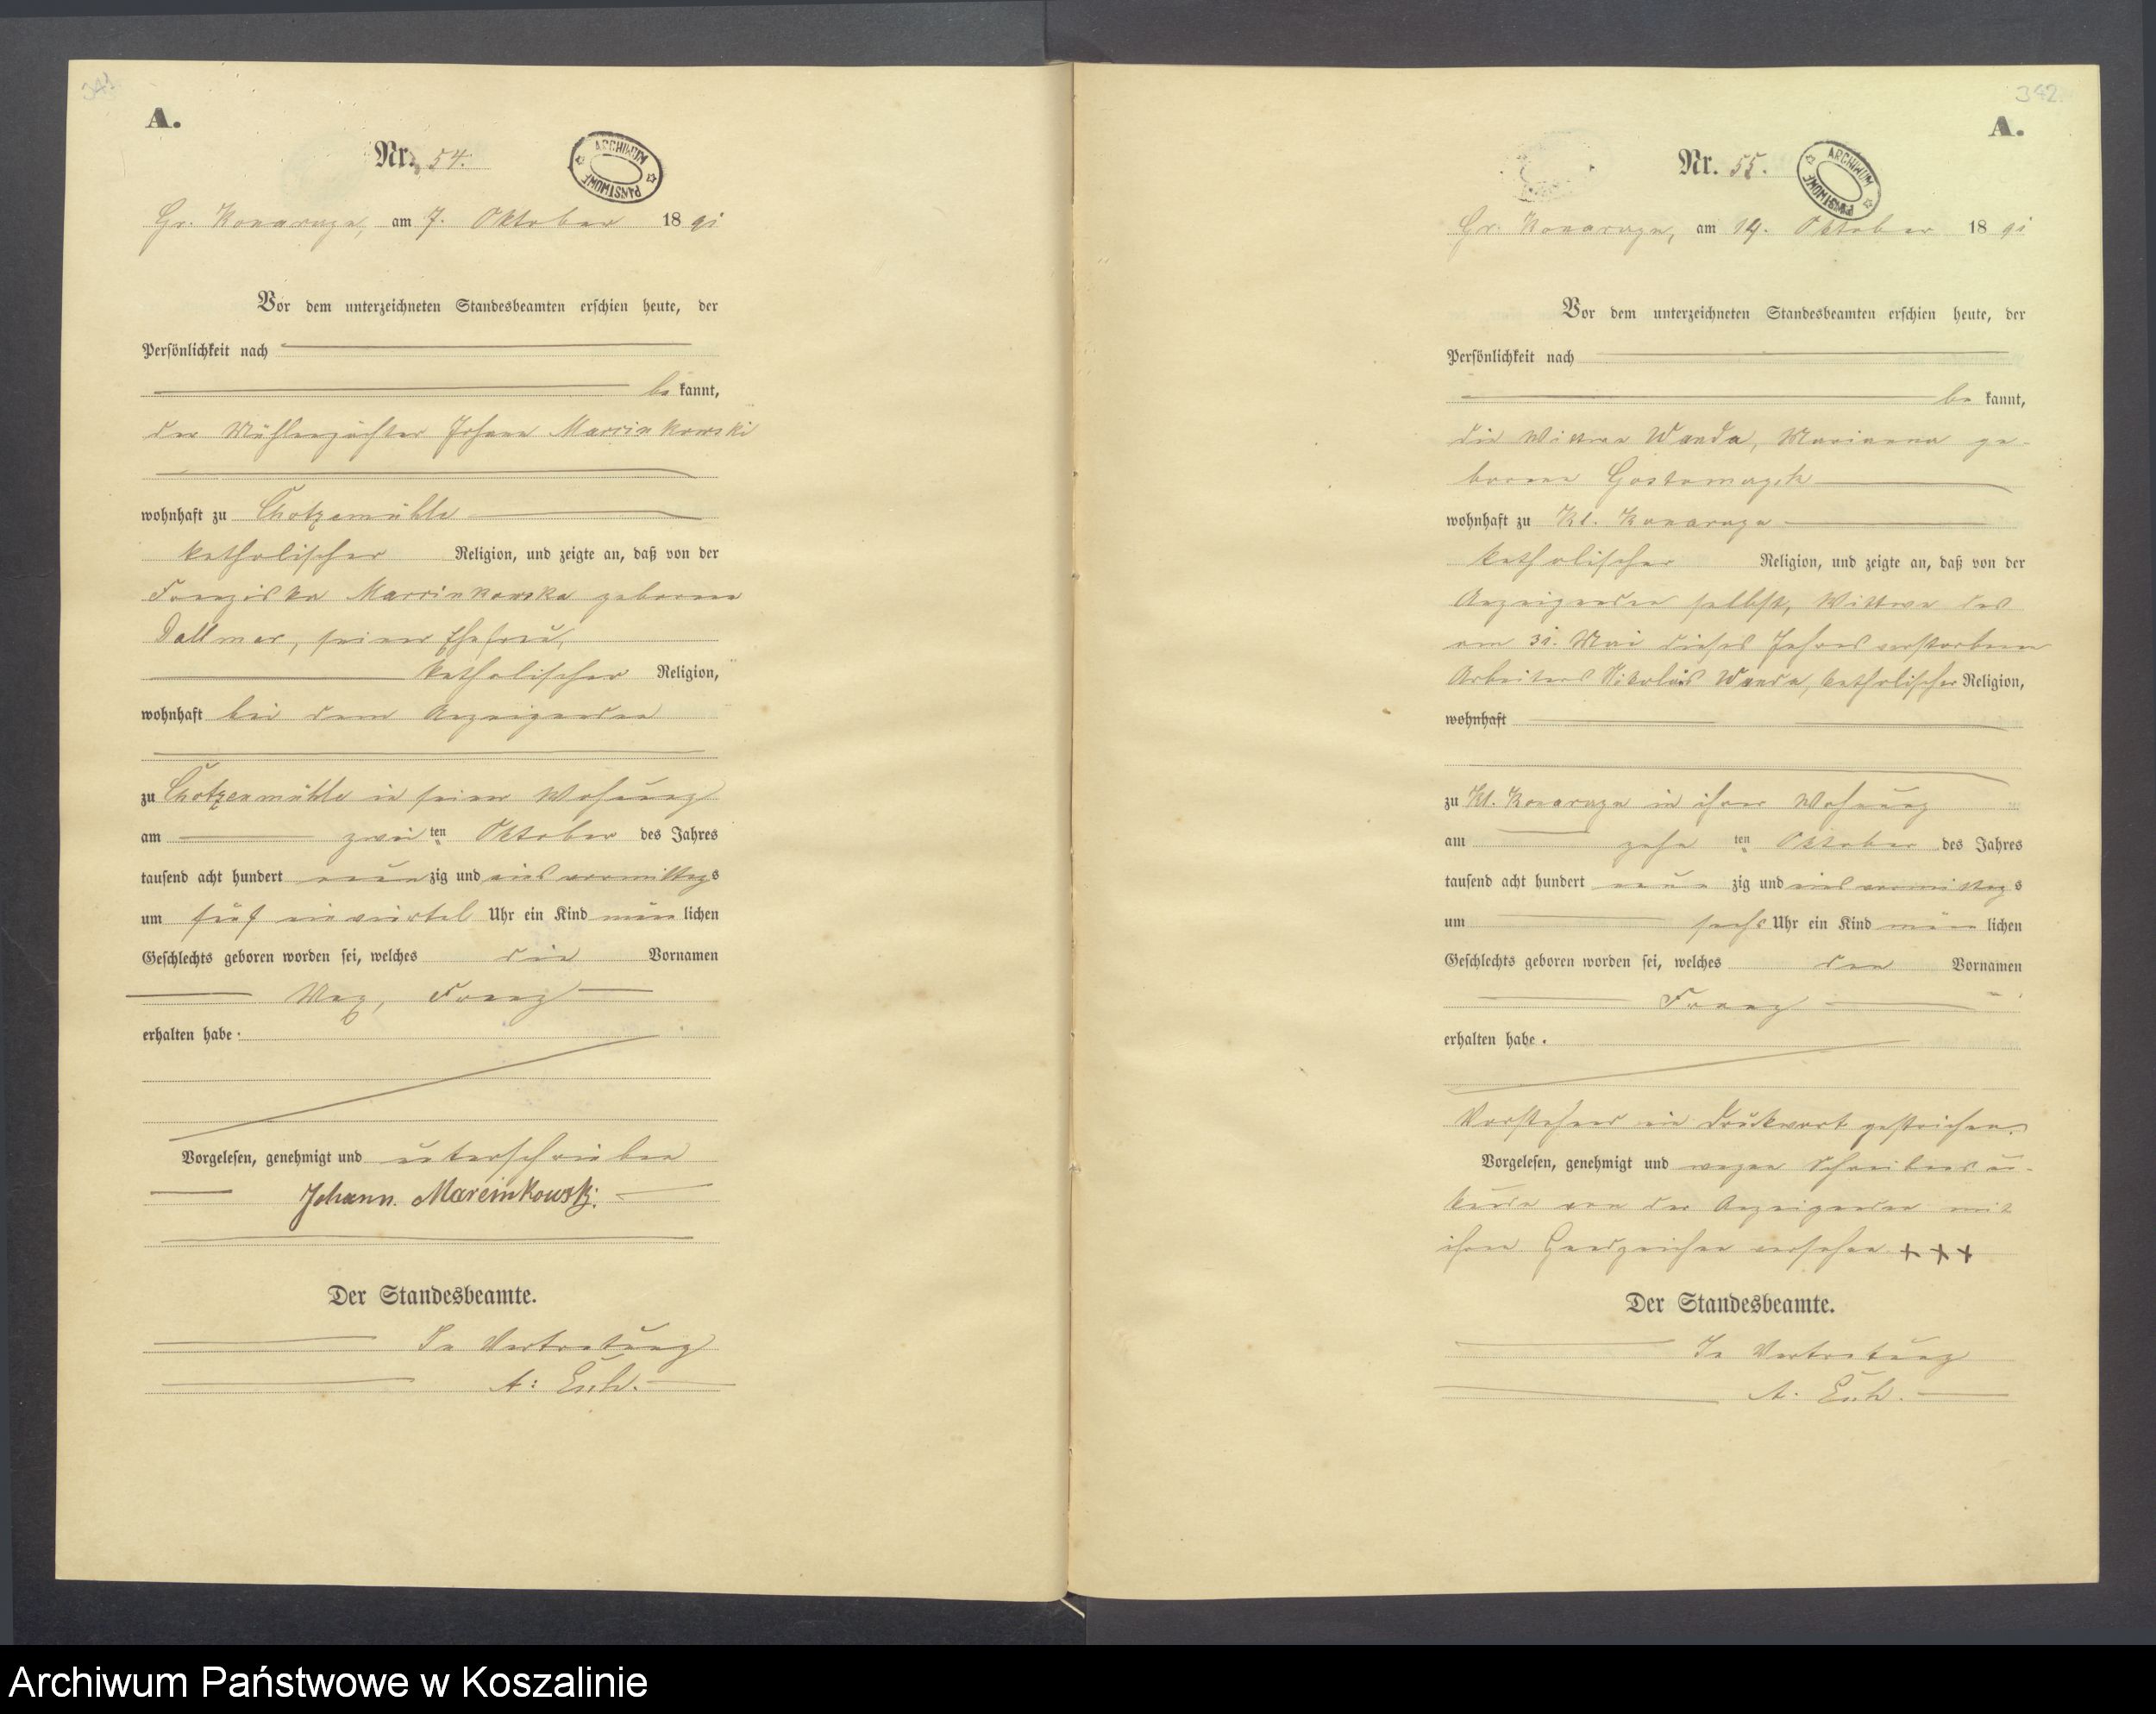 341
A.
Nr. 54.
ARCHIWUM PAŃSTWOWE
Gr. Konarzyn, am 7. Oktober 1891
Vor dem unterzeichneten Standesbeamten erschien heute, der
Persönlichkeit nach
be kannt,
der Mühlenpächter Johann Marcinkowski
wohnhaft zu Chotzenmühle
katholischer Religion, und zeigte an, daß von der
Franziska Marcinkowska geborene
Dallmer, seiner Ehefrau,
katholischer Religion,
wohnhaft bei dem Anzeigenden
zu Chotzenmühle in seiner Wohnung
am zwei ten Oktober des Jahres
tausend acht hundert neun zig und eins vormittags
um fünf ein viertel Uhr ein Kind män lichen
Geschlechts geboren worden sei, welches die Vornamen
Max, Franz
erhalten habe.
Vorgelesen, genehmigt und unterschrieben
Johann. Marcinkowski.
Der Standesbeamte.
In Vertretung
A.
342
A.
Nr. 55.
ARCHIWUM PAŃSTWOWE
Gr. Konarzyn, am 14. Oktober 1891
Vor dem unterzeichneten Standesbeamten erschien heute, der
Persönlichkeit nach
be kannt,
die Wittwe Wanda, Marianna ge-
borene
wohnhaft zu Kl. Konarzyn
katholischer Religion, und zeigte an, daß von der
Anzeigenden selbst, Wittwe des
am 31. Mai dieses Jahres verstorbenen
Arbeiters Nikolaus Wanda, katholischer Religion,
wohnhaft
zu Kl. Konarzyn in ihrer Wohnung
am zehn ten Oktober des Jahres
tausend acht hundert neun zig und eins vormittags
um sechs Uhr ein Kind män lichen
Geschlechts geboren worden sei, welches den Vornamen
Franz
erhalten habe.
Vorstehend ein Druckwort gestrichen.
Vorgelesen, genehmigt und wegen Schreibensun-
kunde von der Anzeigenden mit
ihren Handzeichen versehen + + +
Der Standesbeamte.
In Vertretung
A.
Archiwum Państwowe w Koszalinie